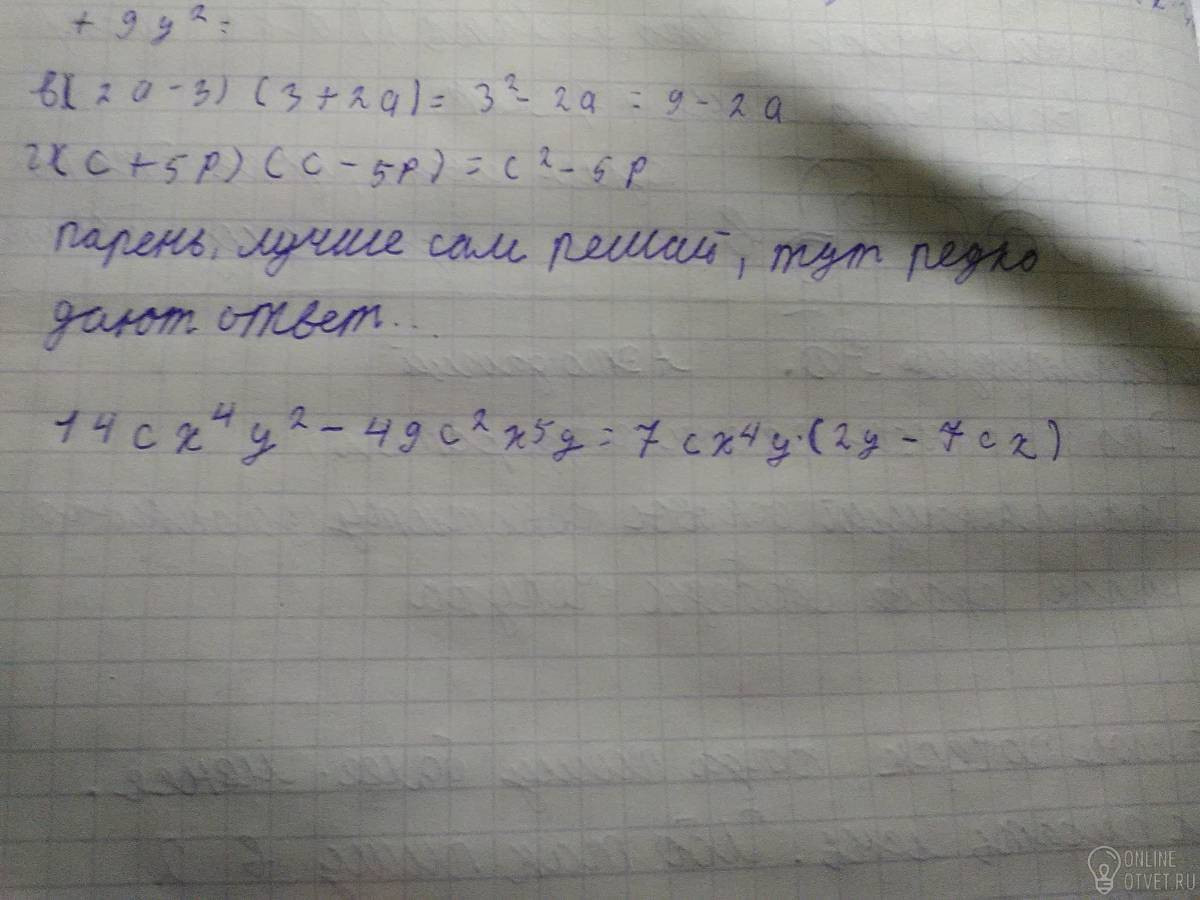 + 9y² =
в) (2a - 3) (3 + 2a) = 3² - 2a = 9 - 2a
г) (c + 5p) (c - 5p) = c² - 5p
парень, лучше сам решай, тут редко
дают ответ...
14cx⁴y² - 49c²x⁵y = 7cx⁴y·(2y - 7cx)
ONLINE
OTVET.RU